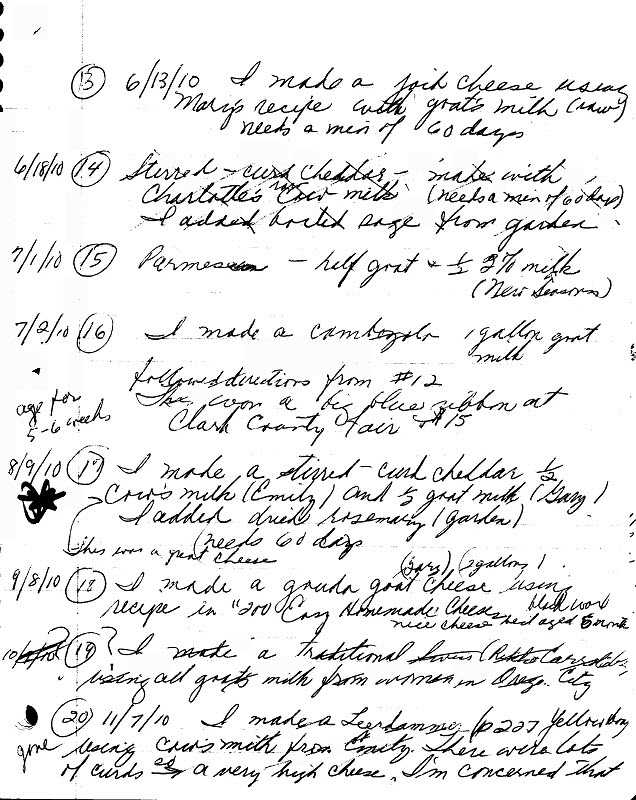 (13) 6/13/10 I made a jack cheese using
Mary's recipe with goat's milk (raw)
needs a min of 60 days
6/18/10 (14) Stirred-curd cheddar - made with
Charlotte's raw cow milk (needs a min of 60 days)
I added boiled sage from garden
7/1/10 (15) Parmesan - half goat & 1/2 2% milk
(New Seasons)
7/2/10 (16) I made a cambozola 1 gallon goat
milk
followed directions from #12
age for
5-6 weeks
This won a big blue ribbon at
Clark County Fair + $15
8/9/10 (17) I made a stirred-curd cheddar 1/2
cow's milk (Emily) and 1/2 goat milk (Gary)
I added dried rosemary (garden)
(needs 60 days
This was a great cheese
(Gary) (2 gallons)
9/8/10 (18) I made a gouda goat cheese using
recipe in "200 Easy Homemade Cheese black wax
nice cheese best aged 5 month
(19) ? I made a traditional
using all goats milk from woman in Oregon City
(20) 11/7/10 I made a Leerdammer (p 227 Yellow
gone using cow's milk from Emily. There were lots
of curds a very high cheese. I'm concerned that